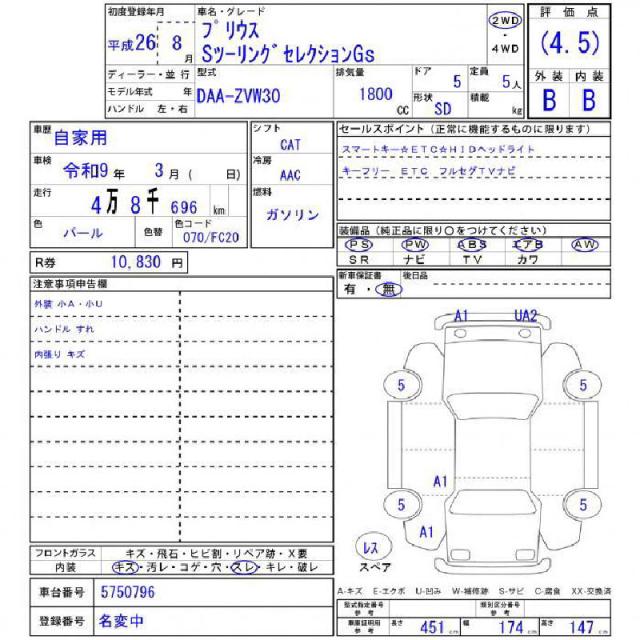 初度登録年月
平成26 8月
車名・グレード
プリウス
SツーリングセレクションGs
2WD
・
4WD
評価点
(4.5)
ディーラー・並行
モデル年式 年
ハンドル 左・右
型式
DAA-ZVW30
排気量
1800
CC
ドア
5
定員
5人
形状
SD
積載
kg
外装 内装
B B
車歴
自家用
車検
令和9年 3月( 日)
走行
4万8千696 km
色
パール
色替
色コード
070/FC20
シフト
CAT
冷房
AAC
燃料
ガソリン
セールスポイント(正常に機能するものに限ります)
スマートキー☆ETC☆HIDヘッドライト
キーフリー ETC フルセグTVナビ
装備品(純正品に限り○をつけてください)
PS PW ABS エアB AW
SR ナビ TV カワ
R券 10,830 円
新車保証書
有・無
後日品
注意事項申告欄
外装 小A・小U
ハンドル すれ
内張り キズ
A1 UA2
5 5
A1
5 5
A1
レス
スペア
フロントガラス キズ・飛石・ヒビ割・リペア跡・X要
内装 キズ・汚レ・コゲ・穴・スレ・キレ・破レ
車台番号 5750796
登録番号 名変中
A-キズ E-エクボ U-凹み W-補修跡 S-サビ C-腐食 XX-交換済
型式指定番号
参考
類別区分番号
参考
車車証明用
参考
長さ 451 cm 幅 174 cm 高さ 147 cm